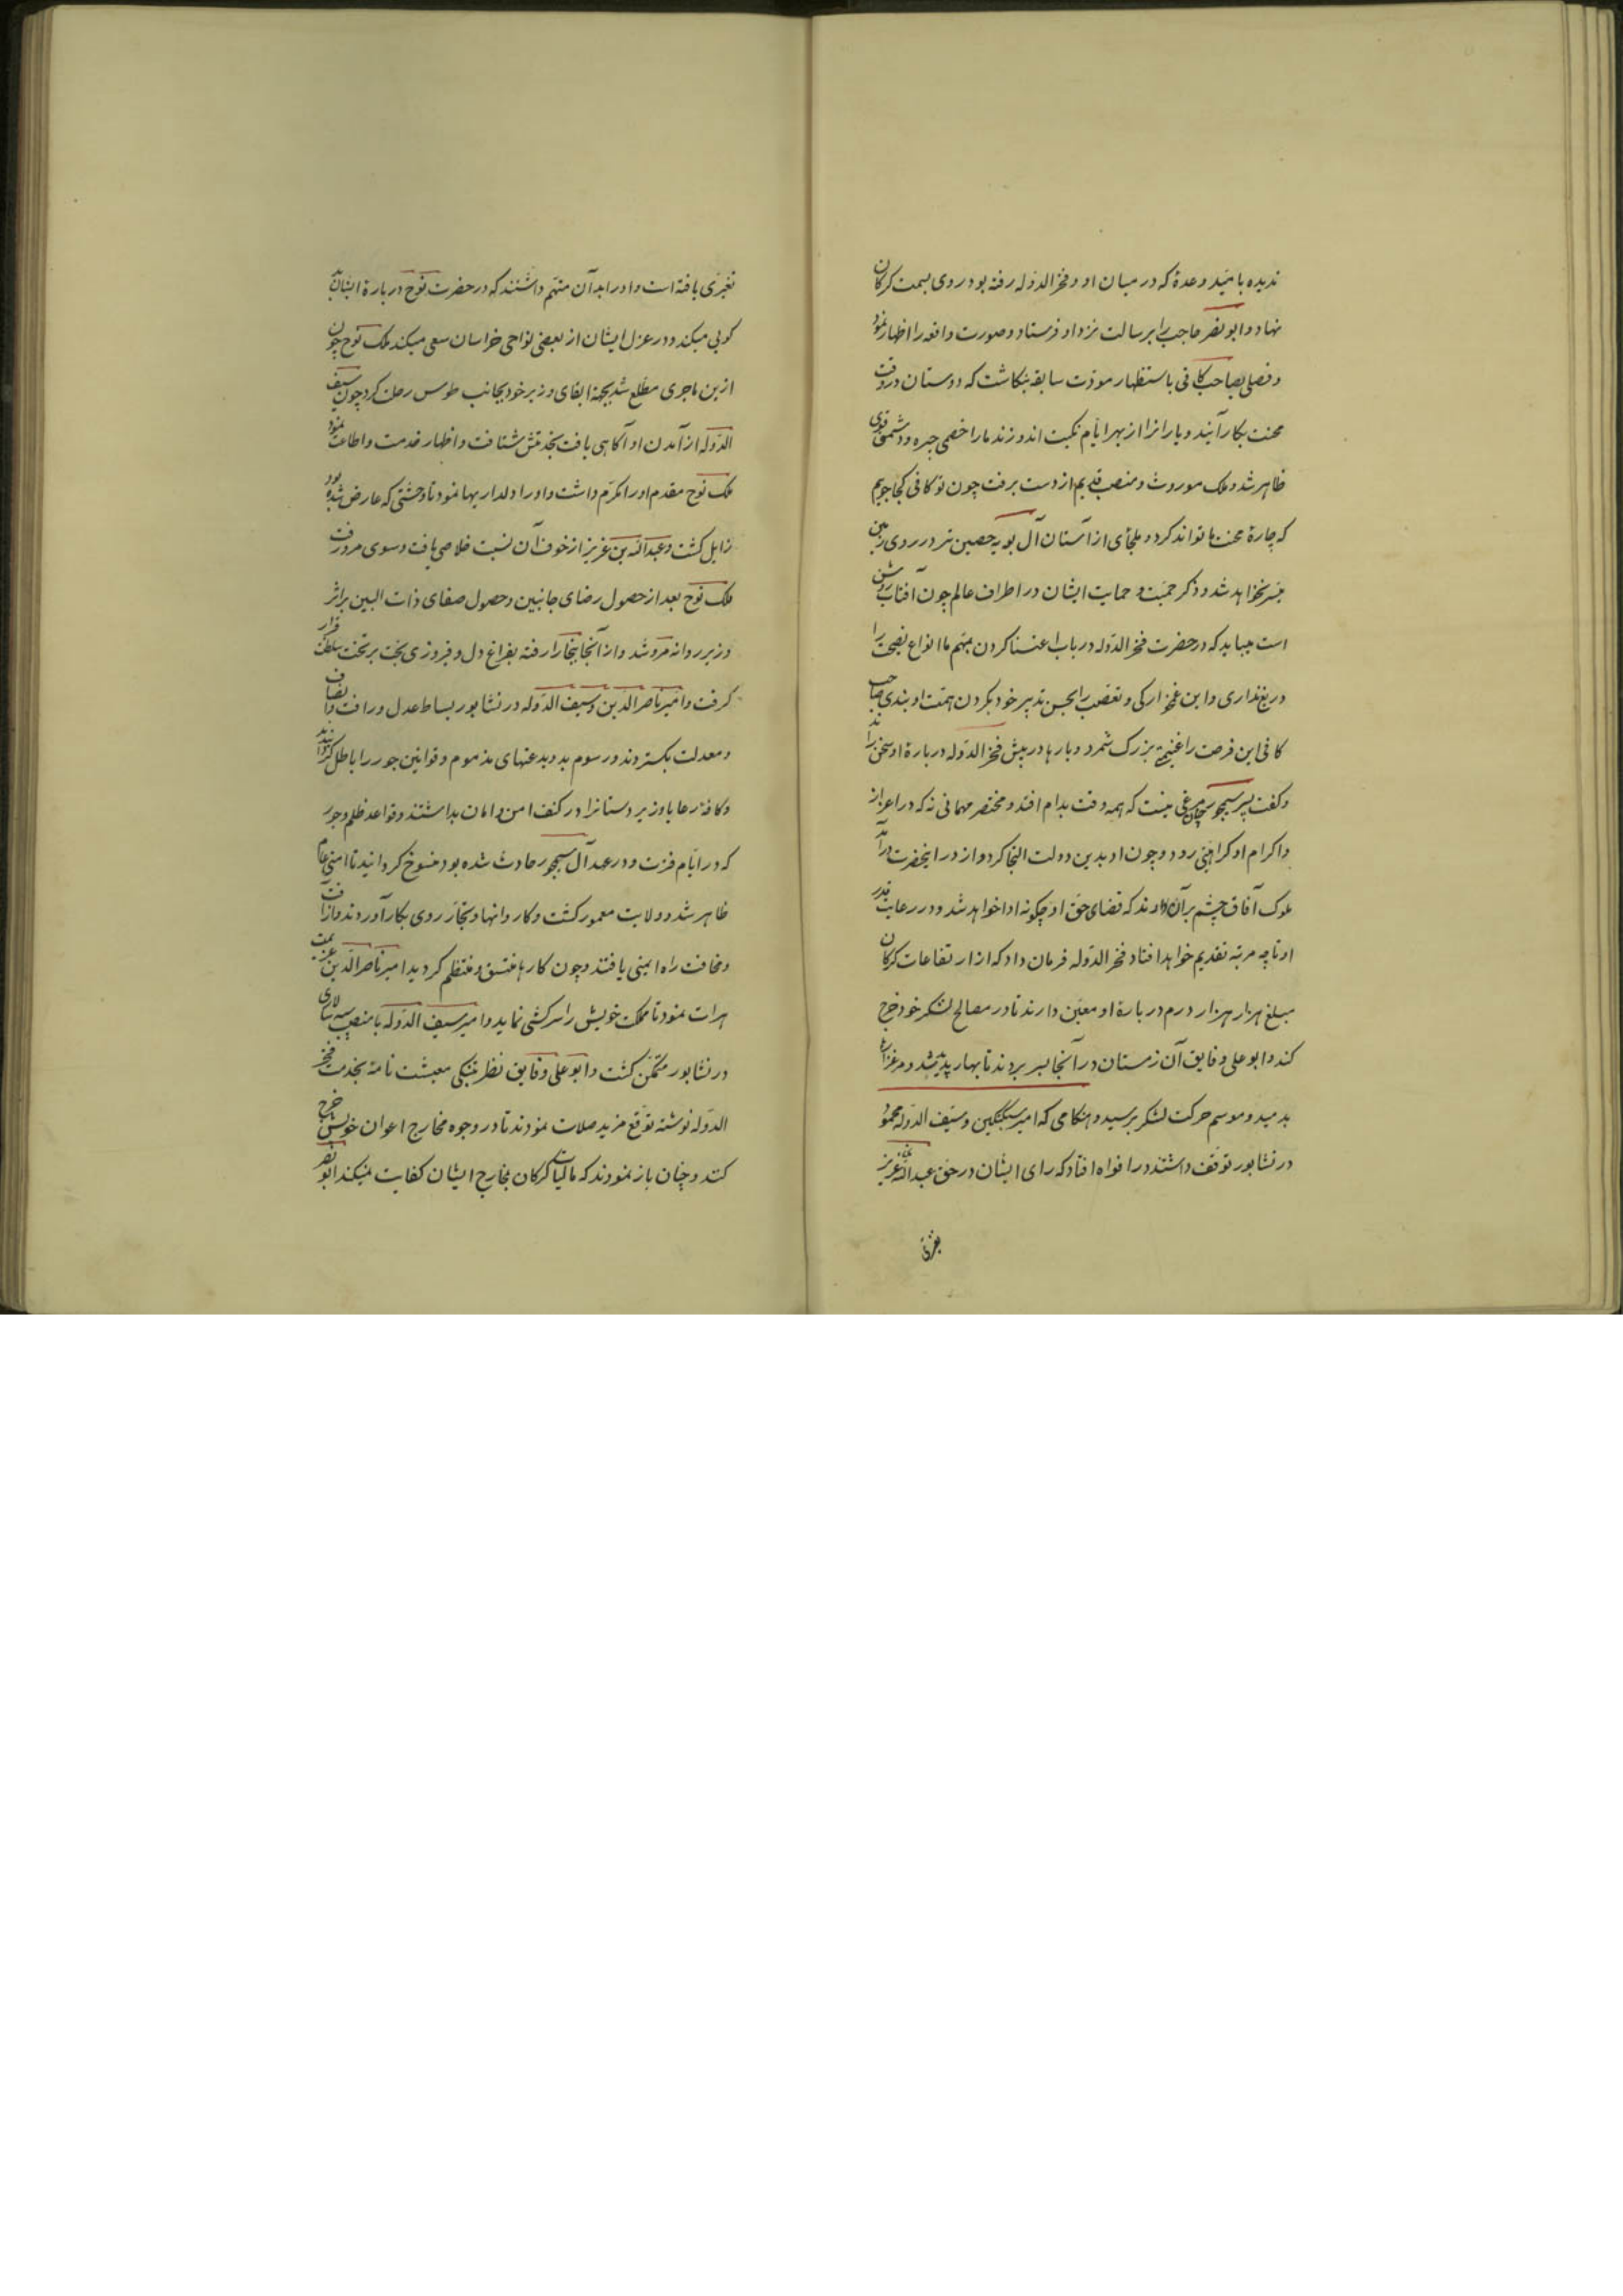 ندیده بامید وعدهٔ که در میان او و فخر الدوله رفته بود روی بسمت کرکان
نهاد و ابو نصر حاجب را برسالت نزد او فرستاد و صورت واقعه را اظهار نمود
و فصلی بصاحب کافی باستظهار مودت سابقه بنکاشت که دوستان در وقت
محنت بکار آیند و یارانرا از بهر ایام نکبت اندوزند ما را خصمی چیره و دشمنی قوی
ظاهر شد و ملک موروث و منصب قدیم از دست برفت چون تو کافی کجا جویم
که چارهٔ محنت ما تواند کرد و ملجأی از آستان آل بویه حصین تر در روی زمین
میسر نخواهد شد و ذکر حمیت و حمایت ایشان در اطراف عالم چون آفتاب روشن
است میباید که در حضرت فخر الدوله در باب اعتنا کردن بمهم ما انواع نصیحت را
دریغ نداری و این غمخوارکی و تعصب را بحسن تدبیر خود بکردن همت او بندی صاحب
کافی این فرصت را غنیمتی بزرک شمرد و بارها در پیش فخر الدوله دربارهٔ او سخن راند
و کفت پسر سیمجور چنان مرغی نیست که همه وقت بدام افتد و مختصر مهمانی نه که در اعزاز
و اکرام او کراهتی رود و چون او بدین دولت التجا کرد و از در اینحضرت درآمد
ملوک آفاق چشم برآن دارند که قضای حق او چکونه ادا خواهد شد و در رعایت قدر
او تا چه مرتبه تقدیم خواهد افتاد فخر الدوله فرمان داد که از ارتفاعات کرکان
مبلغ هزار هزار درم دربارهٔ او معین دارند تا در مصالح لشکر خود خرج
کند و ابو علی و فایق آن زمستان در آنجا بسر بردند تا بهار پدید شد و مرغزارها
بدمید و موسم حرکت لشکر برسید و هنکامی که امیر سبکتکین و سیف الدوله محمود
در نشابور توقف داشتند در افواه افتاد که رای ایشان در حق عبد الله عزیز
تغیری
تغیری یافته است و او را بدآن متهم داشتند که در حضرت نوح دربارهٔ ایشان بد
کویی میکند و در عزل ایشان از بعضی نواحی خراسان سعی میکند ملک نوح چون
ازین ماجری مطلع شد بجهة ابقای وزیر خود بجانب طوس رحلت کرد چون سیف
الدوله از آمدن او آکاهی یافت بخدمتش شتافت و اظهار خدمت و اطاعت نمود
ملک نوح مقدم او را مکرم داشت و او را دلداریها نمود تا وحشتی که عارض شده بود
زایل کشت و عبد الله بن عزیز از خوف آن نسبت خلاصی یافت و سوی مرو رفت
ملک نوح بعد از حصول رضای جانبین و حصول صفای ذات البین بر اثر
وزیر روانه مرو شد و از آنجا ببخارا رفته بفراغ دل و فیروزی بخت بر تخت سلطنت قرار
کرفت و امیر ناصر الدین و سیف الدوله در نشابور بساط عدل و رافت و انصاف
و معدلت بکستردند و رسوم بد و بدعتهای مذموم و قوانین جور را باطل کردانیدند
و کافهٔ رعایا و زیردستانرا در کنف امن و امان بداشتند و قواعد ظلم و جور
که در ایام فترت و در عهد آل سیمجور حادث شده بود منسوخ کردانید تا امنی تمام
ظاهر شد و ولایت معمور کشت و کاروانها و تجار روی بکار آوردند و از آفت
و مخافت راه ایمنی یافتند و چون کارها متسق و منتظم کردید امیر ناصر الدین عزیمت
هرات نمود تا مملکت خویش را سرکشی نماید و امیر سیف الدوله با منصب سپه سالاری
در نشابور متمکن کشت و ابو علی و فایق نظر بتنکی معیشت نامهٔ بخدمت فخر
الدوله نوشته توقع مزید صلات نمودند تا در وجوه مخارج اعوان خویش خرج
کنند و چنان باز نمودند که مالیات کرکان بخارج ایشان کفایت نمیکند ابو نصر